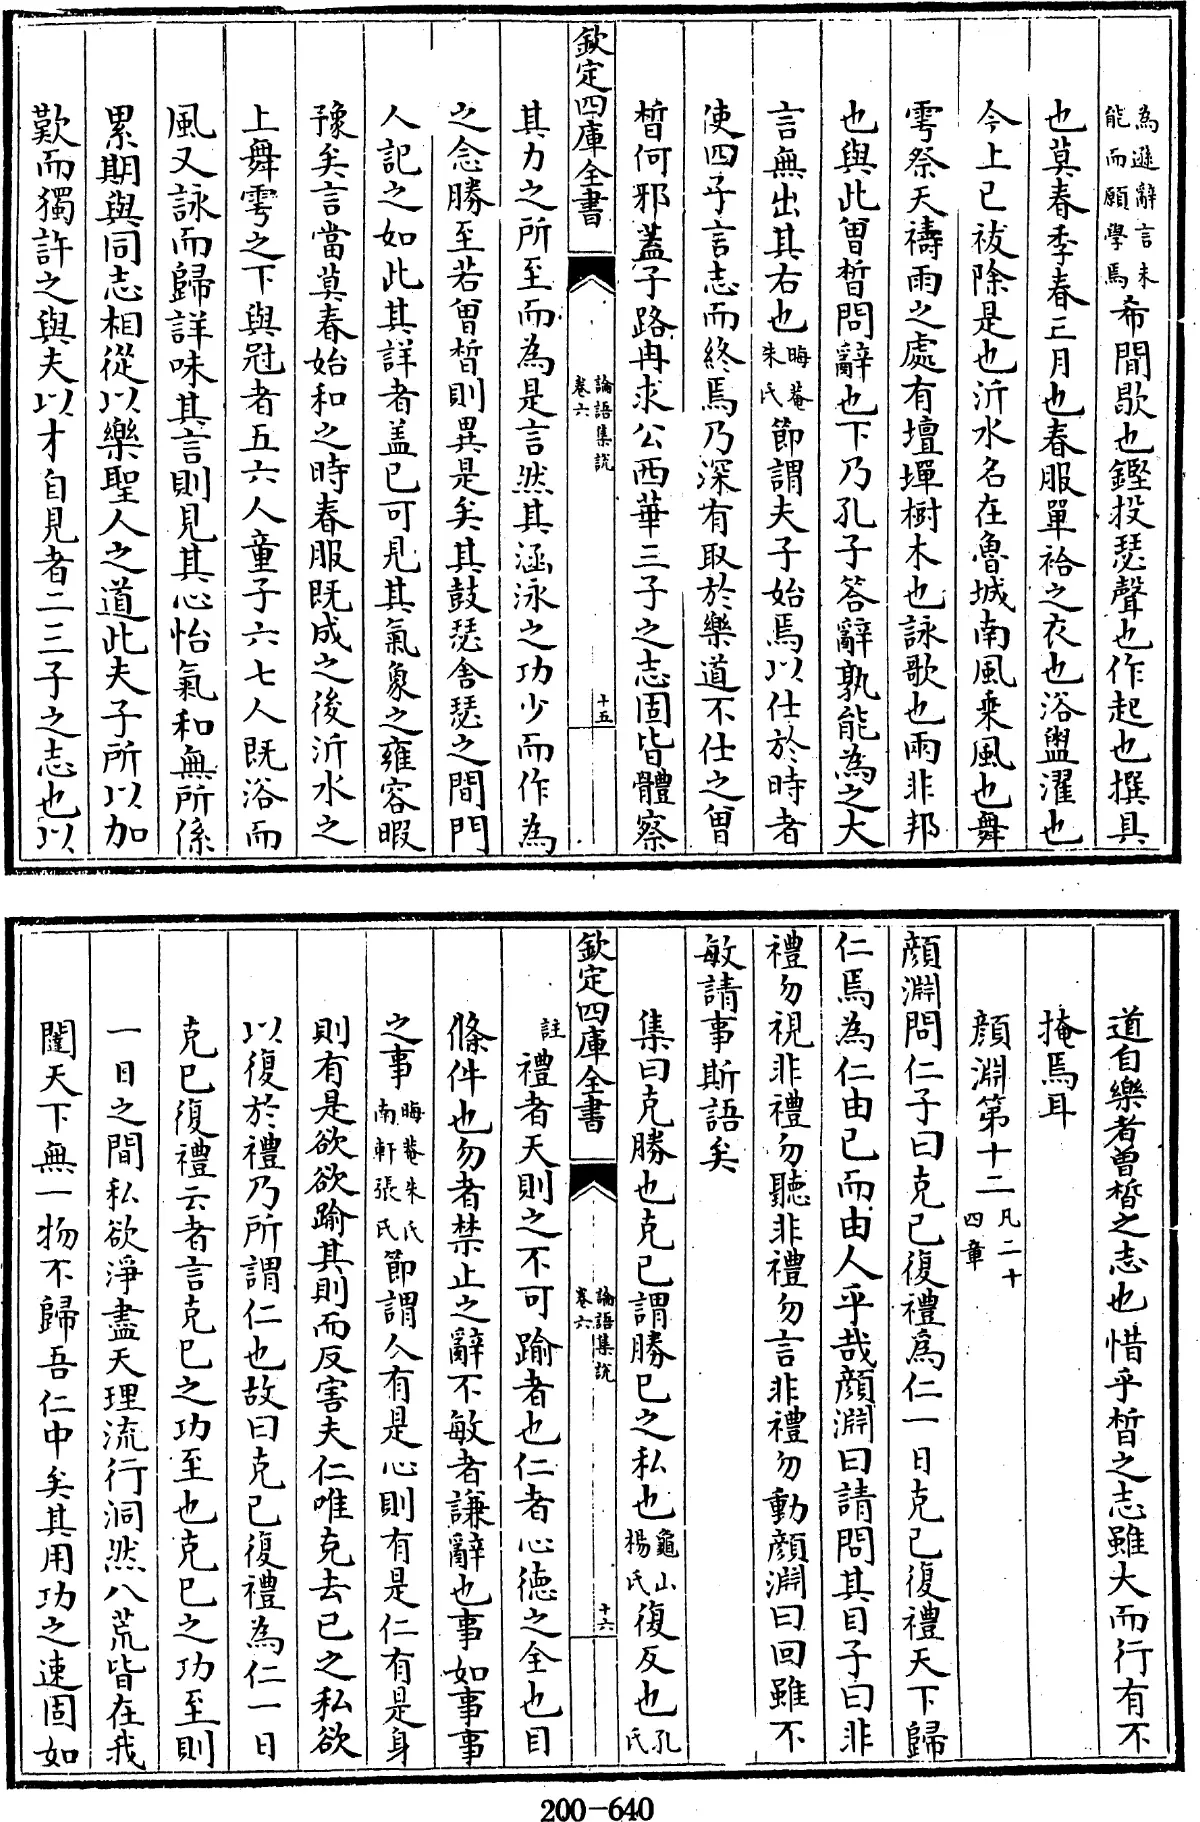 為遜辭言未能而願學焉希間歇也鏗投瑟聲也作起也撰具
也莫春季春三月也春服單袷之衣也浴盥濯也
今上巳祓除是也沂水名在魯城南風乗風也舞
雩祭天禱雨之處有壇墠樹木也詠歌也兩非邦
也與此曾晳問辭也下乃孔子答辭孰能為之大
言無出其右也晦菴朱氏節謂夫子始焉以仕於時者
使四子言志而終焉乃深有取於樂道不仕之曾
晳何邪蓋子路冉求公西華三子之志固皆體察
欽定四庫全書 論語集説 卷六 十五
其力之所至而為是言然其涵泳之功少而作為
之念勝至若曾晳則異是矣其鼓瑟舍瑟之間門
人記之如此其詳者盖已可見其氣象之雍容暇
豫矣言當莫春始和之時春服既成之後沂水之
上舞雩之下與冠者五六人童子六七人既浴而
風又詠而歸詳味其言則見其心怡氣和無所係
累期與同志相從以樂聖人之道此夫子所以加
歎而獨許之與夫以才自見者二三子之志也以
道自樂者曾晳之志也惜乎晳之志雖大而行有不
掩焉耳
顔淵第十二凡二十四章
顔淵問仁子曰克已復禮為仁一日克已復禮天下歸
仁焉為仁由已而由人乎哉顔淵曰請問其目子曰非
禮勿視非禮勿聽非禮勿言非禮勿動顔淵曰回雖不
敏請事斯語矣
集曰克勝也克已謂勝已之私也龜山楊氏復反也孔氏
欽定四庫全書 論語集説 卷六 十六
註禮者天則之不可踰者也仁者心德之全也目
條件也勿者禁止之辭不敏者謙辭也事如事事
之事晦菴朱氏南軒張氏節謂人有是心則有是仁有是身
則有是欲欲踰其則而反害夫仁唯克去已之私欲
以復於禮乃所謂仁也故曰克已復禮為仁一日
克已復禮云者言克已之功至也克已之功至則
一日之間私欲淨盡天理流行洞然八荒皆在我
闥天下無一物不歸吾仁中矣其用功之速固如
200-640